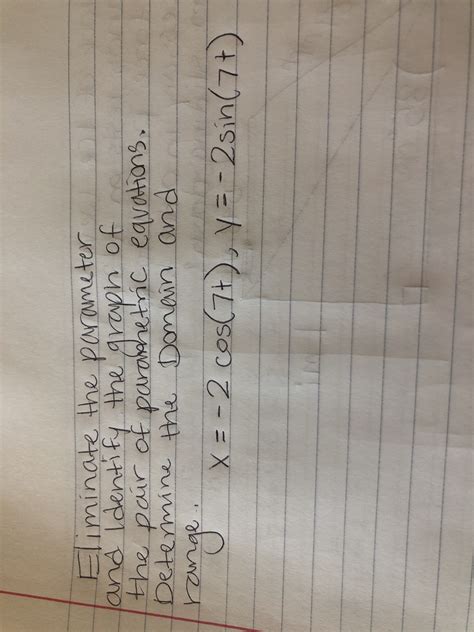 Eliminate the parameter
and Identify the graph of
the pair of parametric equations.
Determine the Domain and
range.
x = -2 cos(7t), y = -2sin(7t)